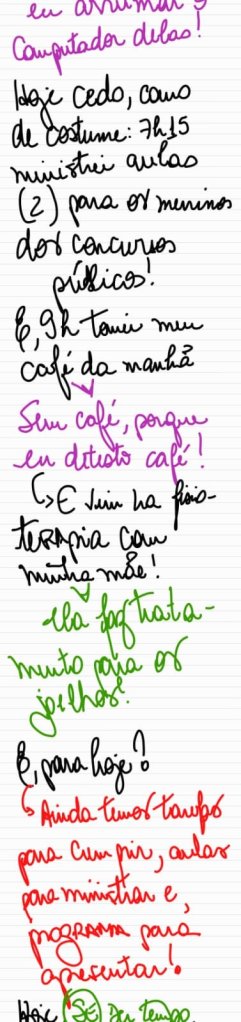 eu arrumar o
Computador delas!
Hoje cedo, como
de costume: 7h15
ministrei aulas
(2) para os meninos
dos concursos
públicos!
E, 9h tomei meu
café da manhã
Sem café, porque
eu detesto café!
E vim na fisio-
terapia com
minha mãe!
Ela faz trata-
mento para os
joelhos!
E, para hoje?
Ainda temos tarefas
para cumprir, aulas
para ministrar e,
programa para
apresentar!
Hoje (SE) Der tempo,